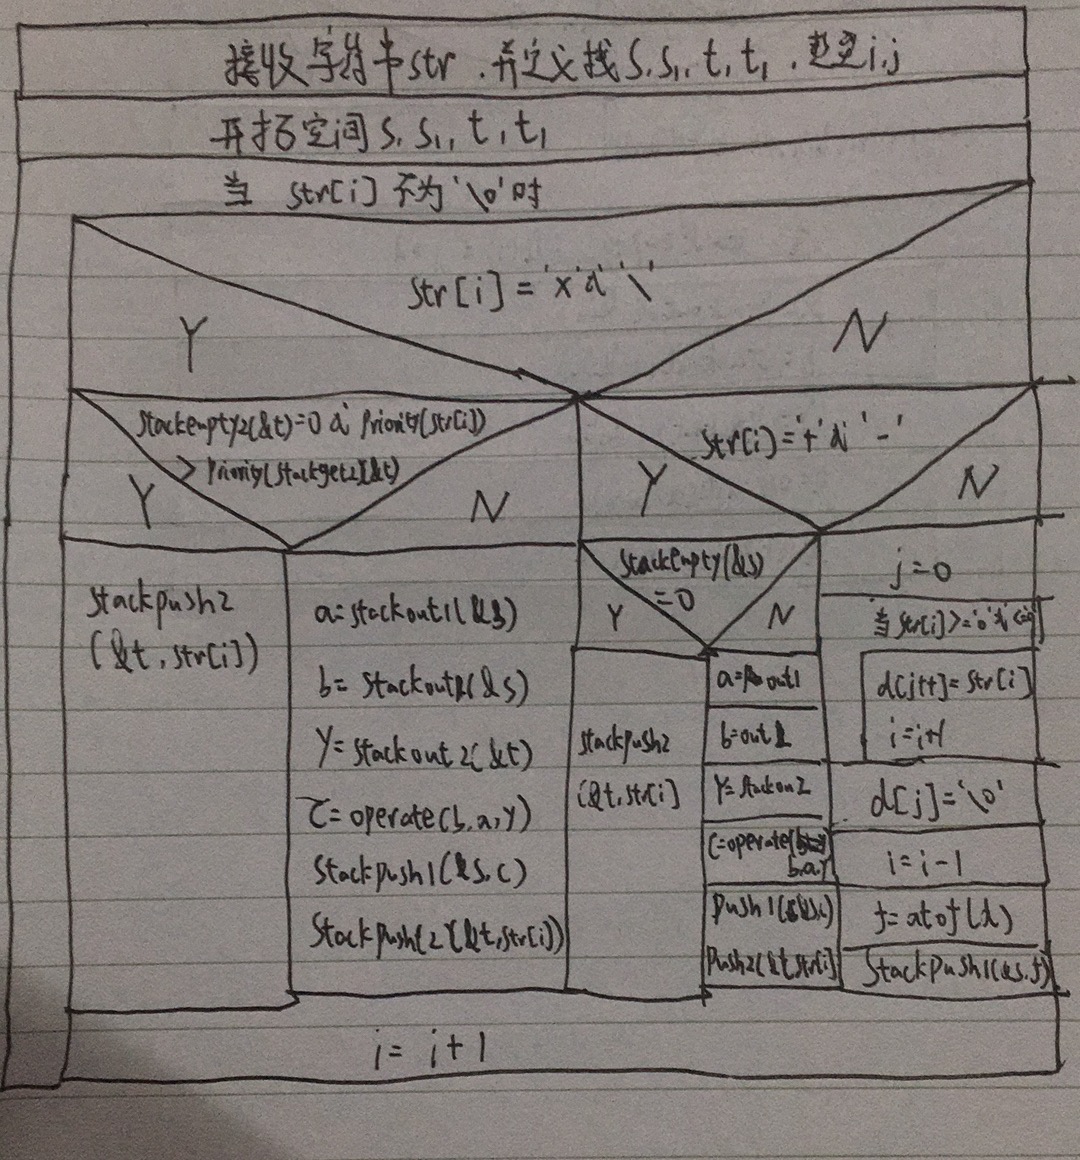 接收字符串str.并定义栈S.S1.t.t1.i.j
开拓空间S.S1.t.t1
当 str[i]不为'\0'时
str[i]='x' '\'
Y
N
Stackempty2(&t)=0 Priority(str[i])
>Priority(Stackget2(&t)
Y
N
str[i]='+' '-'
Y
N
Stackpush2
(&t,str[i])
a=stackout1(&s)
b=stackout1(&s)
Y=stackout2(&t)
C=operate(b,a,Y)
Stackpush1(&s,c)
Stackpush(2)(&t,str[i])
StackEmpty(&s)
=0
Y
N
Stackpush2
(&t,str[i]
a=out1
b=out1
Y=Stackou2
C=operate(
b,a,Y
push1(&s,c)
push2(&t,str[i]
j=0
当str[i]>='0'
d[j++]=str[i]
i=i+1
d[j]='\0'
i=i-1
f=atof(d)
StackPush1(&s,f)
i=i+1